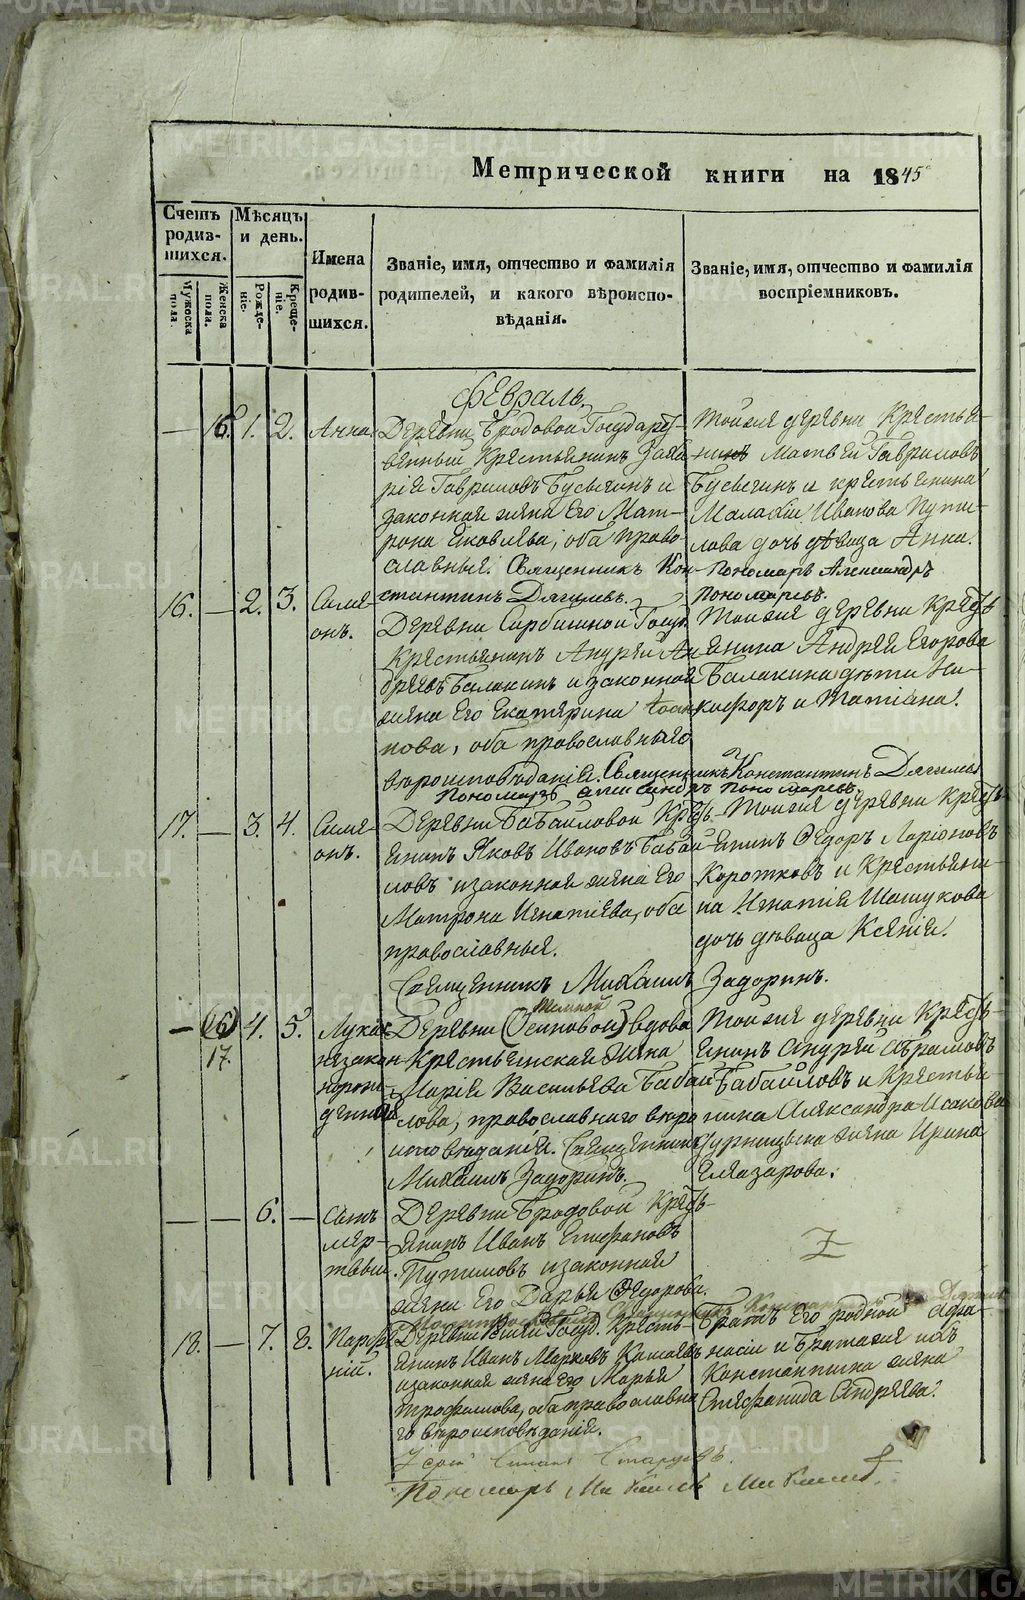 Метрической книги на 1845
Счетъ родившихся.
Мѣсяцъ и день.
Мужеска пола.
Женска пола.
Рожденіе.
Крещеніе.
Имена родившихся.
Званіе, имя, отчество и фамилія
родителей, и какого вѣроиспо-
вѣданія.
Званіе, имя, отчество и фамилія
воспріемниковъ.
Февраль.
— 16. 1. 2. Анна
Деревни Бродовой Государст-
венный Крестьянинъ
Гавриловъ Бусыгинъ и
законная жена Его Мат-
рона Яковлева, оба право-
славные. Священникъ Кон-
стантинъ Дягилевъ.
Тойже деревни Крестья-
нинъ Матвей Гавриловъ
Бусыгинъ и крестьянина
Малахіи Иванова Пути-
лова дочь дѣвица Анна.
Пономарь Александръ
Пономаревъ.
16. — 2. 3. Симе-
онъ.
Деревни Госуд.
Крестьянинъ Андрей Ан-
дреевъ Балакинъ и законная
жена Его Екатерина
нова, оба православнаго
вѣроисповѣданія. Священникъ Константинъ Дягилевъ
Пономарь Александръ Пономаревъ.
Тойже деревни Кресть-
янина Андрея Егорова
Балакина дѣти Ни-
кифоръ и Татіана.
17. — 3. 4. Симе-
онъ.
Деревни Бабаиловой Кресть-
янинъ Яковъ Ивановъ Бабаи-
ловъ и законная жена Его
Матрона Игнатіева, оба
православные.
Священникъ Михаилъ Задоринъ.
Тойже деревни Кресть-
янинъ Ѳедоръ Ларіоновъ
Коротковъ и Крестьяни-
на Игнатія Шашукова
дочь дѣвица Ксенія.
— (16) 4. 5. Лукія
17. незакон-
норож-
денная
Темной
Деревни (Осиновой) вдова
Крестьянская жена
Марія Васильева Бабаи-
лова, православнаго вѣро
исповѣданія. Священникъ
Михаилъ Задоринъ.
Тойже деревни Кресть-
янинъ Андрей Абрамовъ
Бабаиловъ и Крестья-
нина Александра Исакова
жена Ирина
Елеазарова.
— — 6. — Сынъ
мер-
твый.
Деревни Бродовой Кресть-
янинъ Иванъ Епифановъ
Путиловъ и законная
жена Его Дарья Ѳедорова.
Z
18. — 7. 8. Парфе-
ній.
Деревни Госуд. Кресть-
янинъ Иванъ Марковъ
и законная жена его Марья
Трофимова, оба православна
го вѣроисповѣданія.
Братъ Его родной Афа-
насій и Братаже ихъ
Константина жена
Степанида Андреева.
Пономарь
METRIKI.GASO-URAL.RU